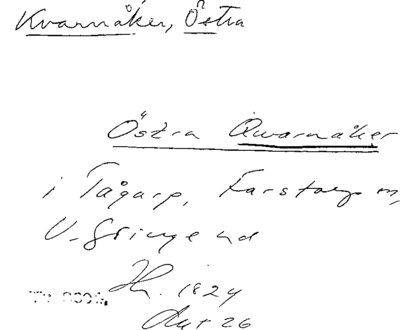 Kvarnåker, Östra
Östra Qwarnåker
i Tågarp, Farstorp sn,
V. Göinge hd
1824
Akt 26